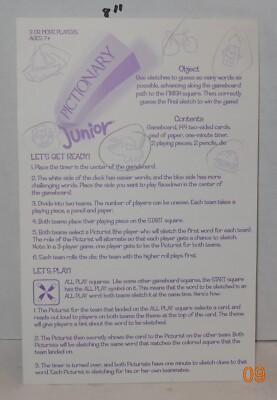 8"
3 OR MORE PLAYERS
AGES 7+
PICTIONARY
Junior
Object
Use sketches to guess as many words as
possible, advancing along the gameboard
path to the FINISH square. Then correctly
guess the final sketch to win the game!
Contents
Gameboard, 144 two-sided cards,
pad of paper, one-minute timer,
2 playing pieces, 2 pencils, die
LET'S GET READY!
1. Place the timer in the center of the gameboard.
2. The white side of the deck has easier words, and the blue side has more
challenging words. Place the side you want to play facedown in the center of
the gameboard.
3. Divide into two teams. The number of players can be uneven. Each team takes a
playing piece, a pencil and paper.
4. Both teams place their playing piece on the START square.
5. Both teams select a Picturist (the player who will sketch first for each team).
The role of the Picturist will alternate so that each player gets a chance to sketch.
Note: In a 3-player game, one player gets to be the Picturist for both teams.
6. Each team rolls the die; the team with the higher roll plays first.
LET'S PLAY!
ALL PLAY squares: Like some other gameboard squares, the START square
has the ALL PLAY symbol on it. This means that the word to be sketched is an
ALL PLAY word: both teams sketch it at the same time. Here's how:
1. The Picturist for the team that landed on the ALL PLAY square selects a card, and
reads out loud to players on both teams the theme at the top of the card. The theme
will give players a hint about the word to be sketched.
2. The Picturist then secretly shows the card to the Picturist on the other team. Both
Picturists will be sketching the same word that matches the colored square that the
team landed on.
3. The timer is turned over, and both Picturists have one minute to sketch clues to that
word. Each Picturist is sketching for his or her own teammates.
09